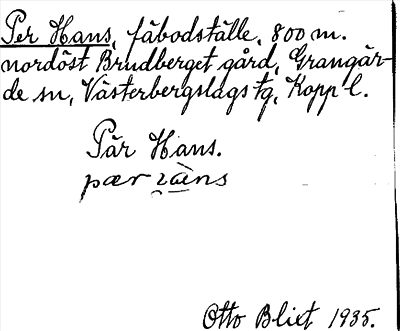 Per Hans, fäbodställe, 800 m.
nordöst Brudberget gård, Grangär-
de sn, Västerbergslags tg, Kopp l.
Pär Hans.
Otto Blixt 1935.